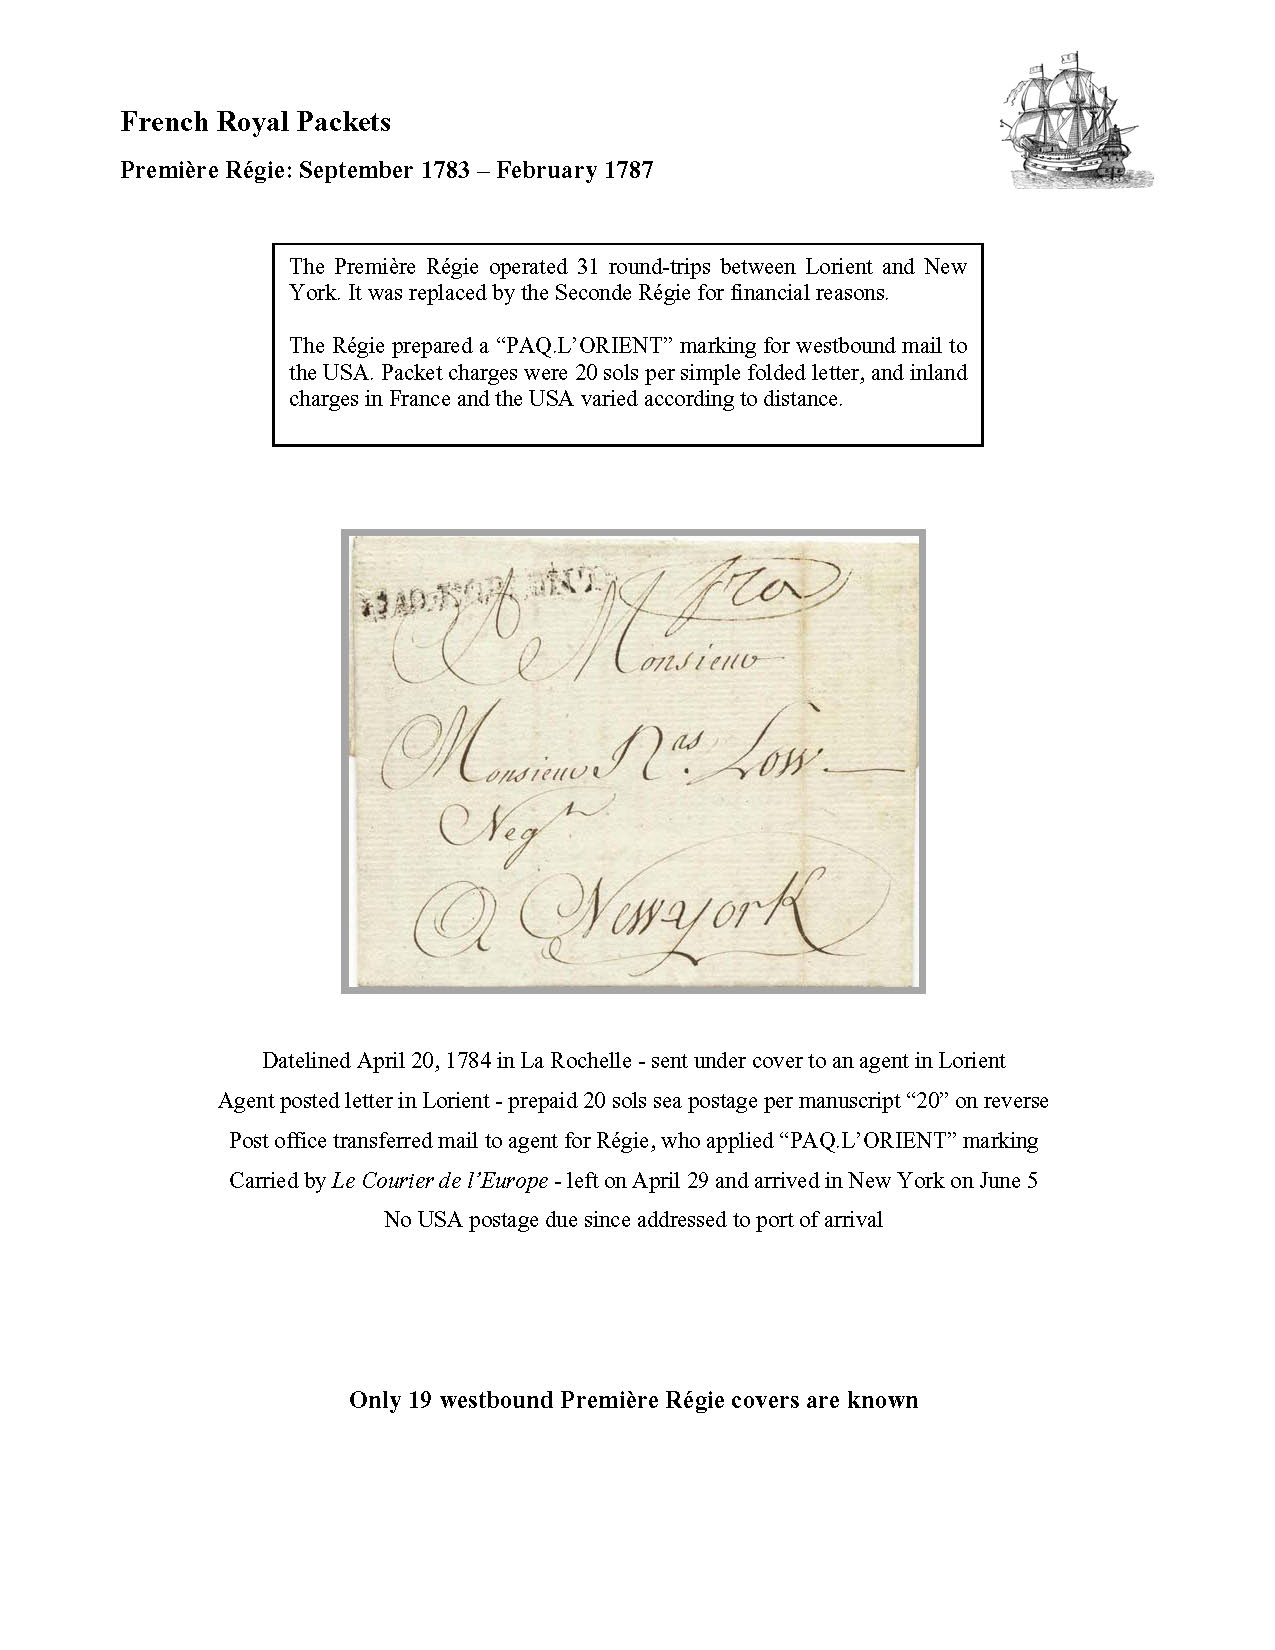 French Royal Packets
Première Régie: September 1783 – February 1787
The Première Régie operated 31 round-trips between Lorient and New
York. It was replaced by the Seconde Régie for financial reasons.
The Régie prepared a “PAQ.L’ORIENT” marking for westbound mail to
the USA. Packet charges were 20 sols per simple folded letter, and inland
charges in France and the USA varied according to distance.
PAQ.L'ORIENT
fco
A Monsieur
Monsieur Nas. Low
Negt
A Newyork
Datelined April 20, 1784 in La Rochelle - sent under cover to an agent in Lorient
Agent posted letter in Lorient - prepaid 20 sols sea postage per manuscript “20” on reverse
Post office transferred mail to agent for Régie, who applied “PAQ.L’ORIENT” marking
Carried by Le Courier de l’Europe - left on April 29 and arrived in New York on June 5
No USA postage due since addressed to port of arrival
Only 19 westbound Première Régie covers are known